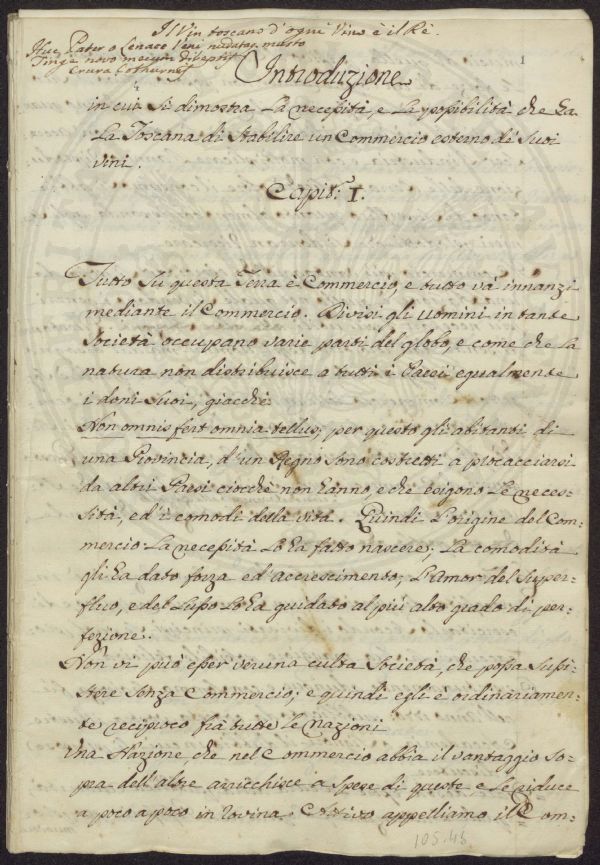 Il Vin toscano d'ogni Vino è il Rè.
Huc Pater o Lenaee Veni nudataq. musto
Tinge novo mecum direptis
Crura Cothurnis
1
Introduzione
in cui si dimostra La necessità, e La possibilità che ha
La Toscana di stabilire un Commercio esterno di Suoi
vini.
Capit. I.
Tutto su questa Terra è Commercio, e tutto và innanzi
mediante il Commercio. Divisi gli uomini in tante
Società occupano varie parti del globo, e come che la
natura non distribuisce a tutti i Paesi egualmente
i doni Suoi, giacchè
Non omnis fert omnia tellus, per questo gli abitanti di
una Provincia, d'un Regno sono costretti a procacciarsi
da altri Paesi ciocchè non hanno, e che esigono Le neces=
sità, ed i comodi della vita. Quindi L'origine del Com=
mercio. La necessità Lo ha fatto nascere; La comodità
gli ha dato forza ed accrescimento; L'Amor del Super=
fluo, e del Lusso Lo ha guidato al più alto grado di per=
fezione.
Non vi può esser veruna culta Società, che possa Sussi
stere senza Commercio; e quindi egli è ordinariamen=
te reciproco frà tutte le nazioni
Una Nazione che nel Commercio abbia il vantaggio So=
pra dell'altre arricchisce a spese di queste e le riduce
a poco a poco in rovina. Attivo appelliamo il Com=
105.45